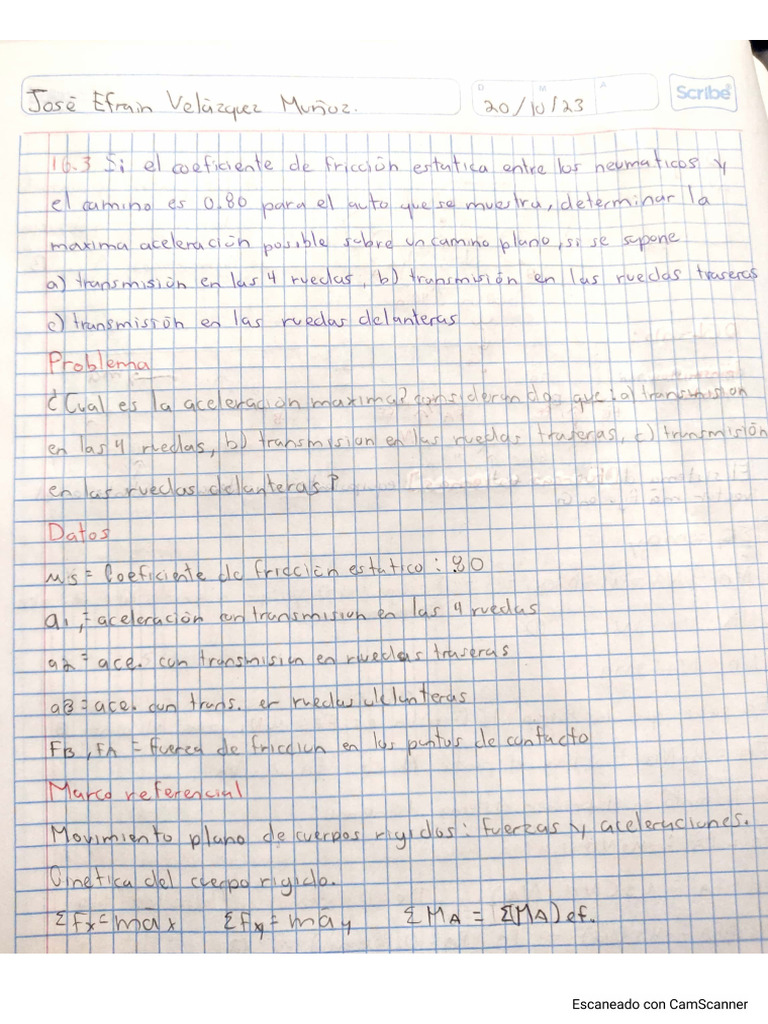 José Efrain Velázquez Muñoz.
D M A
20/10/23
Scribe
16.3 Si el coeficiente de fricción estatica entre los neumaticos y
el camino es 0.80 para el auto que se muestra, determinar la
maxima aceleración posible sobre un camino plano, si se supone
a) transmisión en las 4 ruedas, b) transmisión en las ruedas traseras
c) transmisión en las ruedas delanteras
Problema
¿Cual es la aceleración maxima? considerando que: a) transmision
en las 4 ruedas, b) transmision en las ruedas traseras, c) transmisión
en las ruedas delanteras?
Datos
Ms = Coeficiente de fricción estatico: .80
a1, = aceleración con transmision en las 4 ruedas
a2 = ace. con transmision en ruedas traseras
a3 = ace. con trans. en ruedas delanteras
FB, FA = fuerza de friccion en los puntos de contacto
Marco referencial
Movimiento plano de cuerpos rigidos: Fuerzas y aceleraciones.
Cinetica del cuerpo rigido.
ΣFx = māx ΣFy = māy ΣMA = Σ(MA)ef.
Escaneado con CamScanner